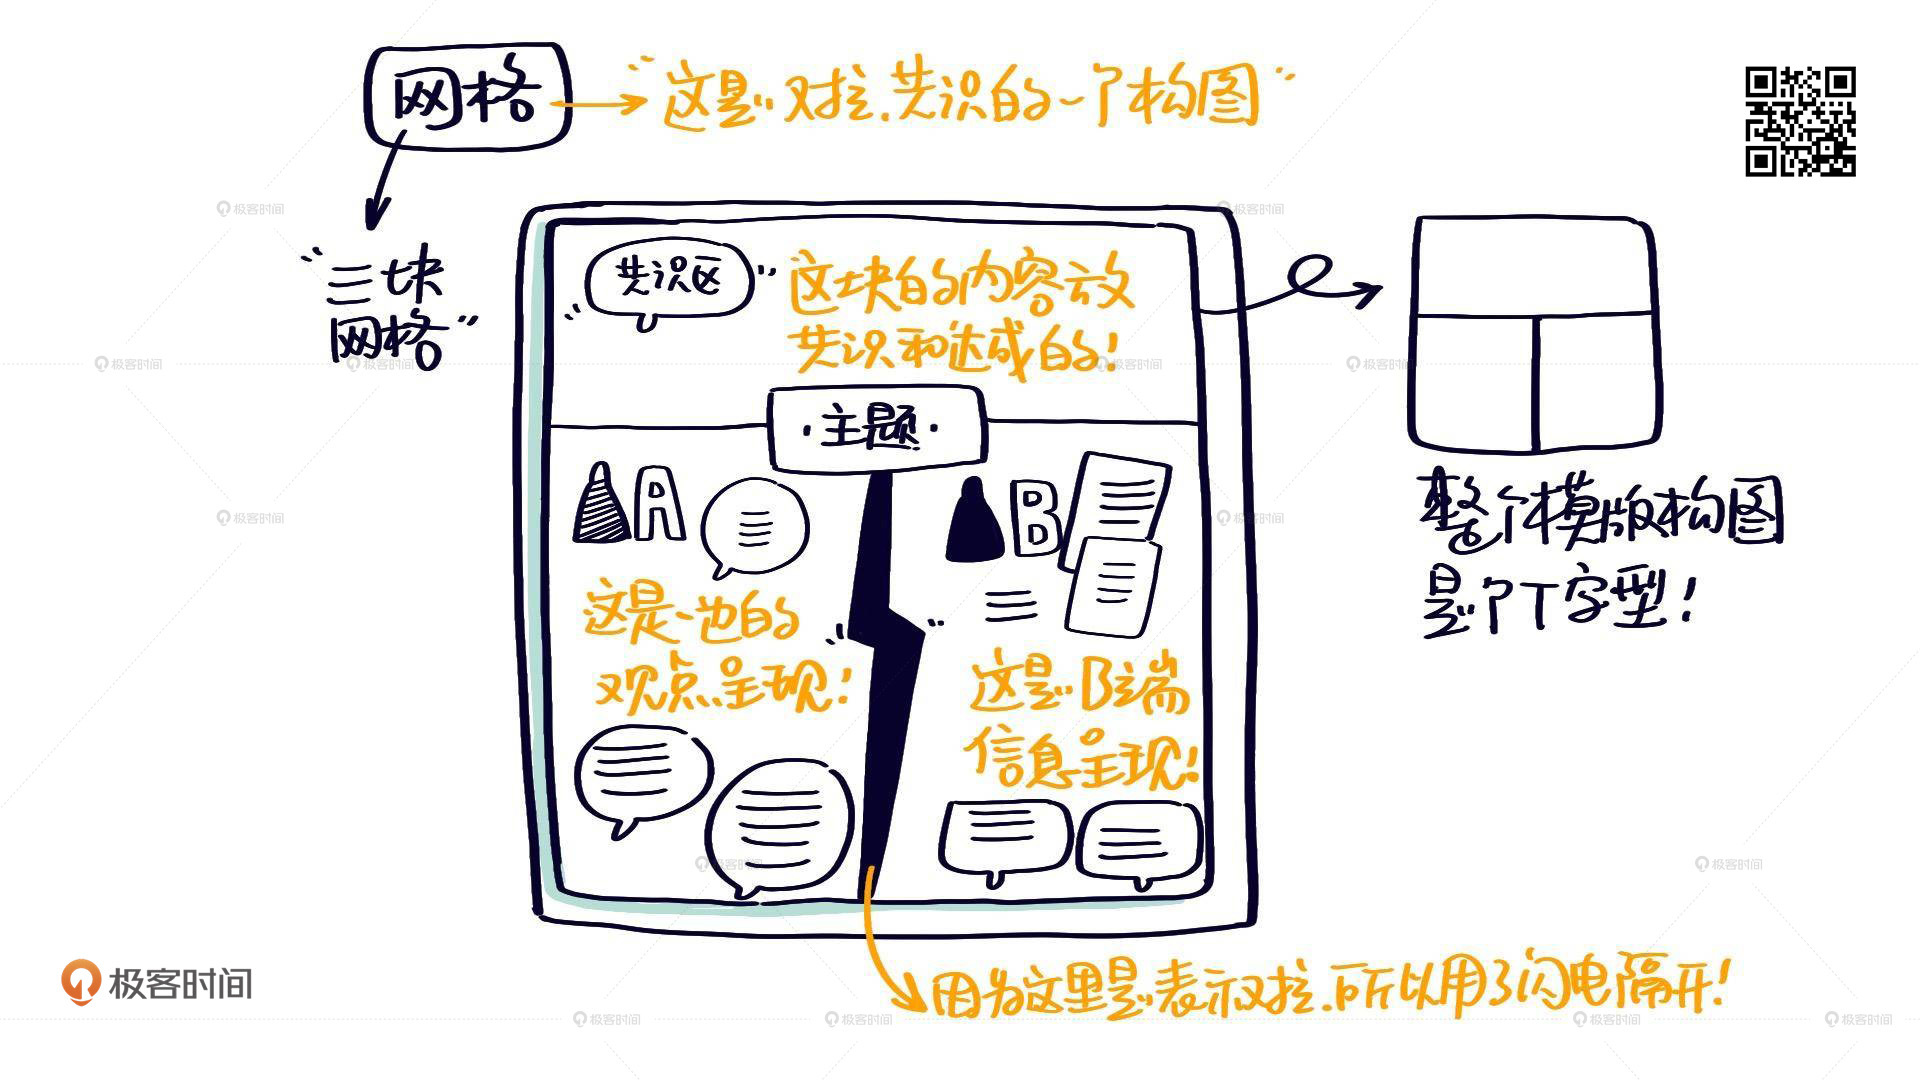 网格
"这是对拉.共识的一个构图"
"三块
网格"
共识区
这块的内容放
共识和达成的!
·主题·
A
B
这是一边的
观点呈现!
这是B端
信息呈现!
整个模版构图
是个T字型!
因为这里是表示对拉.所以用了闪电隔开!
极客时间